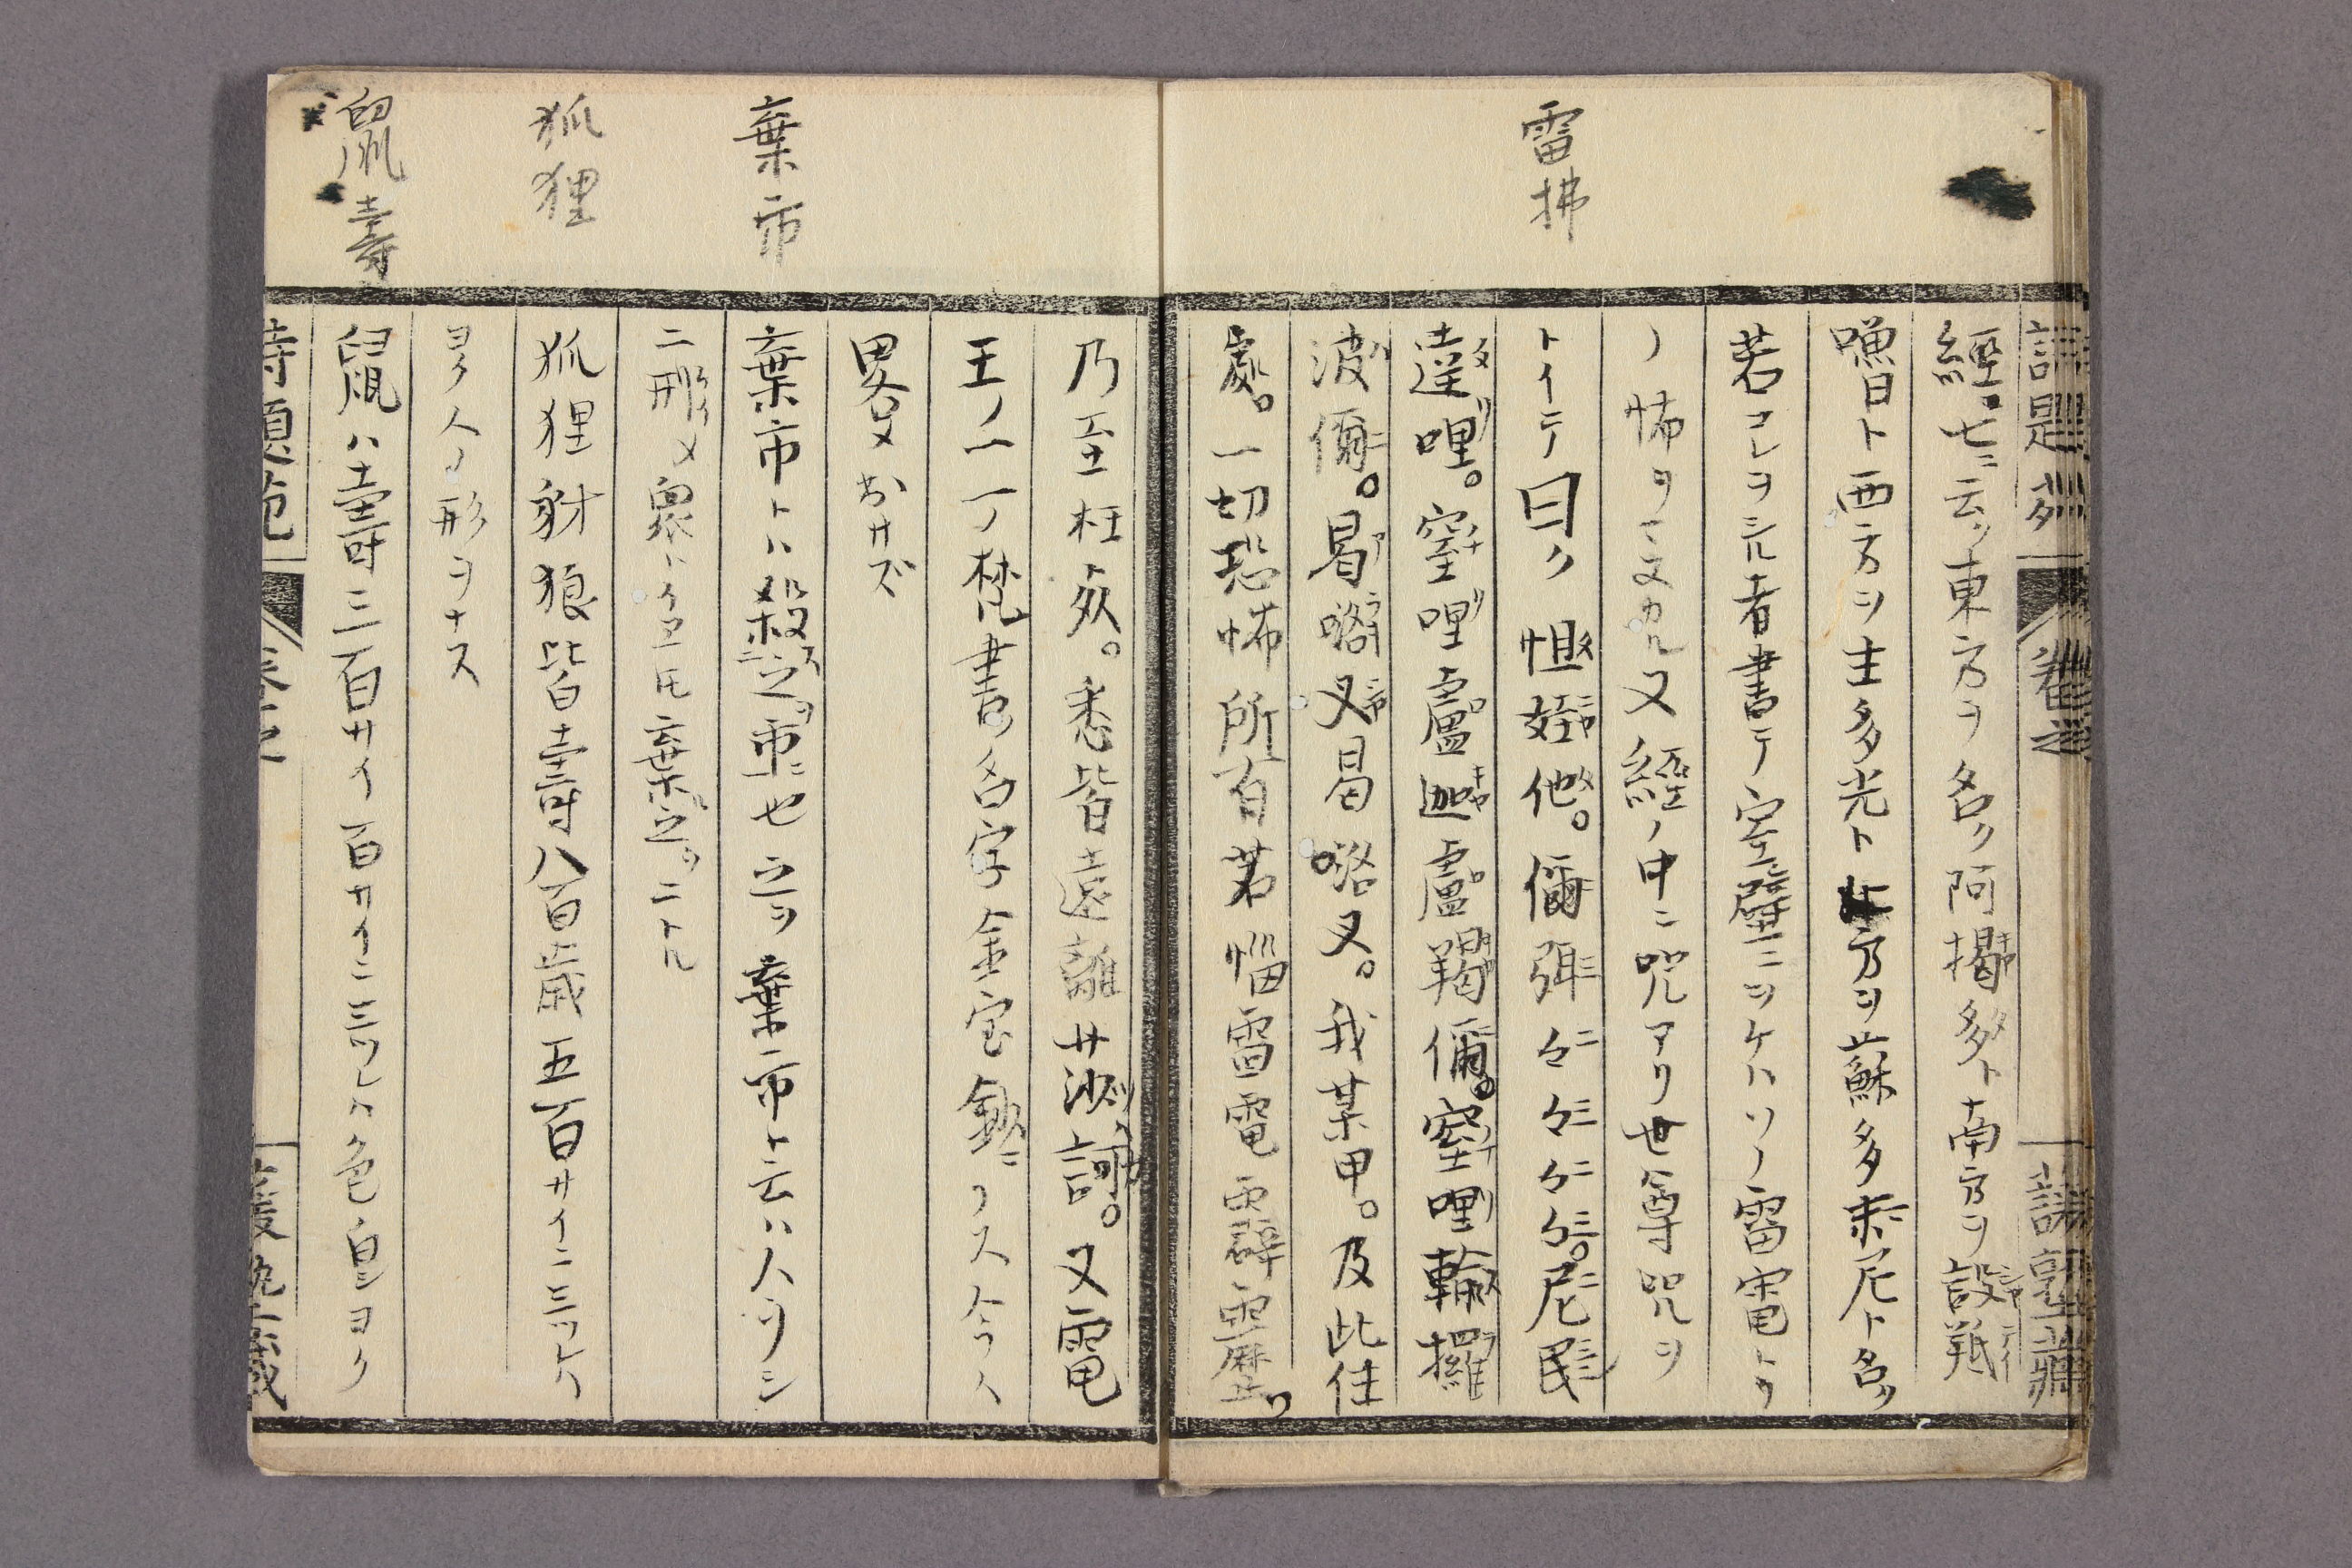 雷拂
經七ニ云ク東方ヲ名ク阿揭多ト南方ヲ設羝
嚕ト西方ヲ主多光ト北方ヲ蘇多末尼ト名ク
若コレヲシル者書テ室壁ニツケハソノ雷電トウ
ノ怖ヲマヌカル又經ノ中ニ呪アリ世尊呪ヲ
トイテ曰ク怛姪他。儞弭々々々々。尼民
達哩。窒哩盧迦盧羯儞。窒哩輸攞
波儞。曷咯叉曷咯叉。我某甲。及此住
處。一切恐怖所有苦惱雷電霹靂。
乃至枉夭。悉皆遠離莎訶。又電
王ノ一一ノ梵書名字金宝
畧メおサズ
棄市
棄市トハ殺之市ニ也之ヲ棄市ト云ハ人ヲシ
二形メ衆ハ棄之ヲニトル
狐狸
狐狸豺狼皆壽八百歳五百サイニミツレハ
ヨク人ノ形ヲナス
鼠壽
鼠ハ壽三百サイ百サイニミツレハ色白シヨク